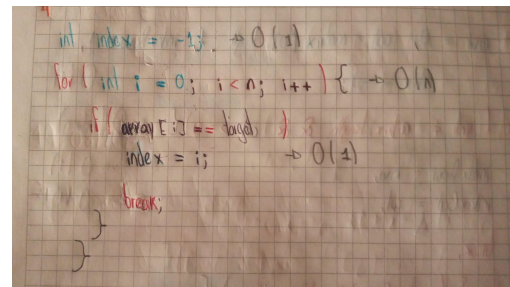 int index = -1; → O(1)
for ( int i = 0; i < n; i++ ) { → O(n)
if ( array[i] == target )
index = i; → O(1)
break;
}
}